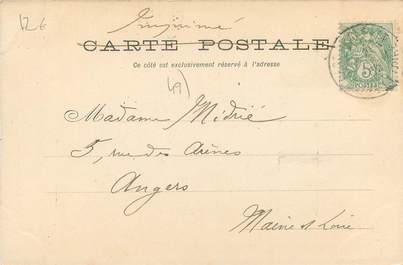 126
Imprimé
CARTE POSTALE
Ce côté est exclusivement réservé à l'adresse
49)
Madame Médrié
5, rue des Arènes
Angers
Maine et Loire
5c
POSTES